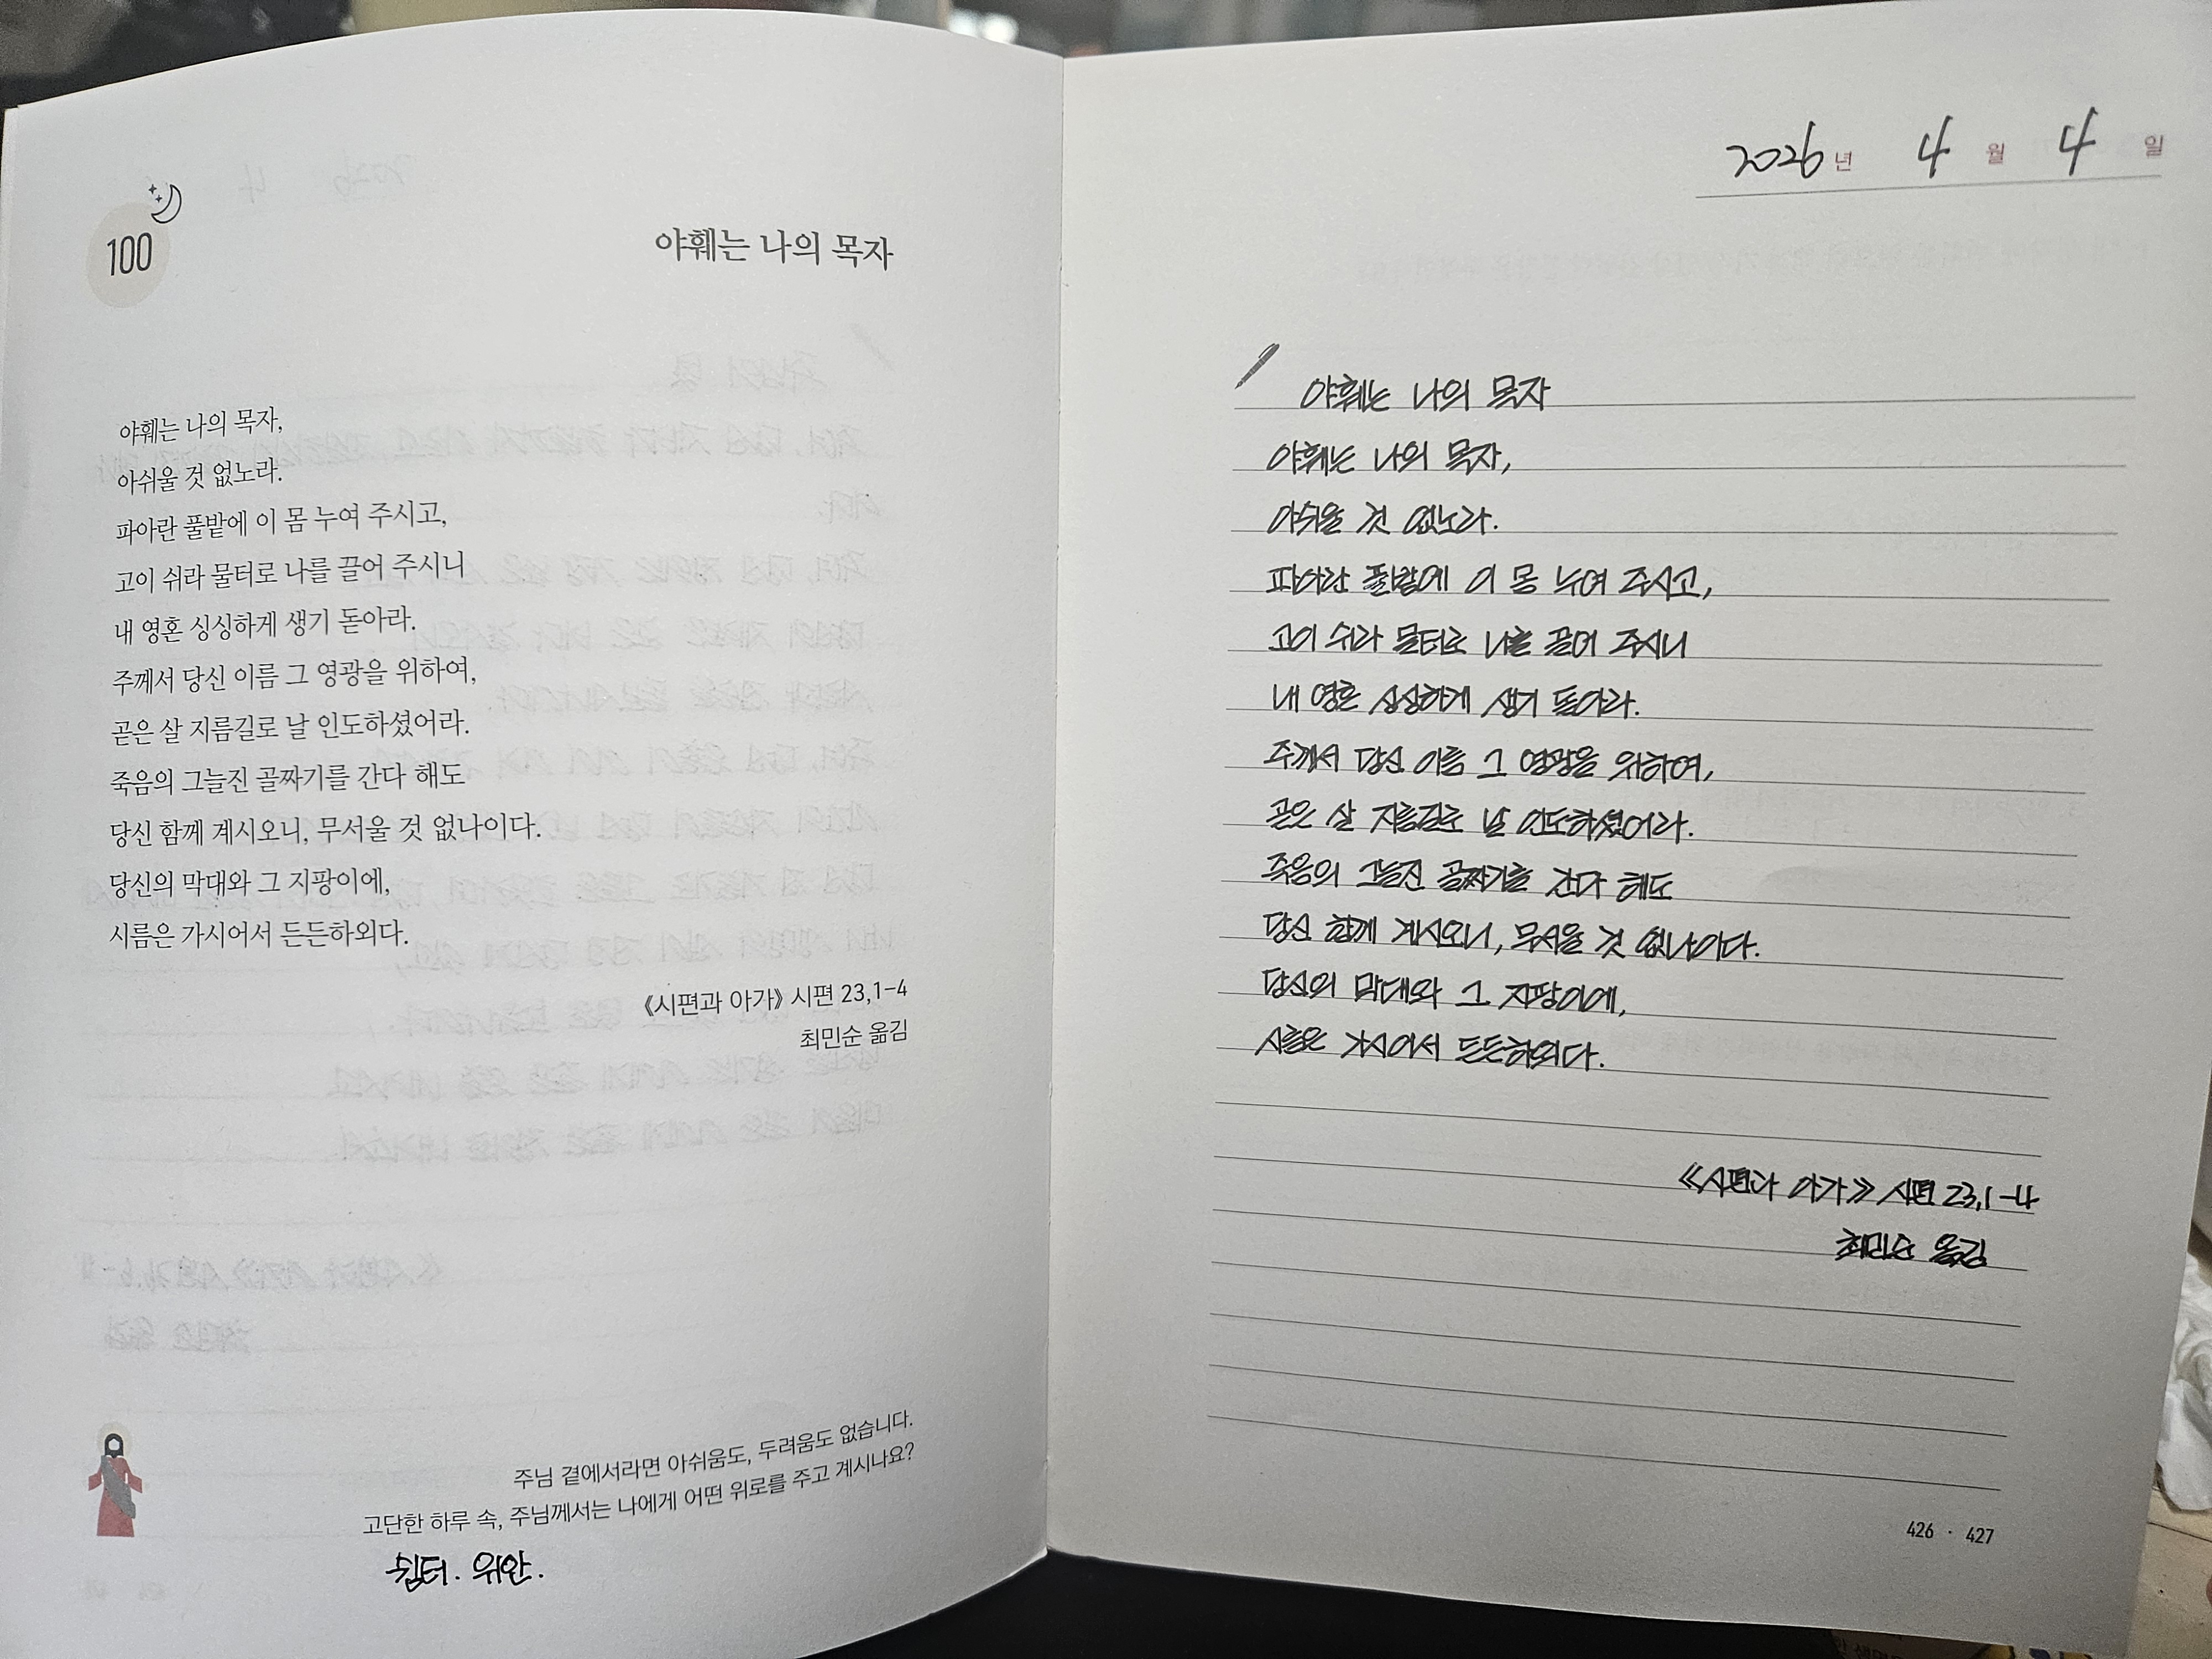 100
야훼는 나의 목자
야훼는 나의 목자,
아쉬울 것 없노라.
파아란 풀밭에 이 몸 누여 주시고,
고이 쉬라 물터로 나를 끌어 주시니
내 영혼 싱싱하게 생기 돋아라.
주께서 당신 이름 그 영광을 위하여,
곧은 살 지름길로 날 인도하셨어라.
죽음의 그늘진 골짜기를 간다 해도
당신 함께 계시오니, 무서울 것 없나이다.
당신의 막대와 그 지팡이에,
시름은 가시어서 든든하외다.
《시편과 아가》 시편 23,1-4
최민순 옮김
주님 곁에서라면 아쉬움도, 두려움도 없습니다.
고단한 하루 속, 주님께서는 나에게 어떤 위로를 주고 계시나요?
쉼터. 위안.
2026년 4월 4일
야훼는 나의 목자
야훼는 나의 목자,
아쉬울 것 없노라.
파아란 풀밭에 이 몸 누여 주시고,
고이 쉬라 물터로 나를 끌어 주시니
내 영혼 싱싱하게 생기 돋아라.
주께서 당신 이름 그 영광을 위하여,
곧은 살 지름길로 날 인도하셨어라.
죽음의 그늘진 골짜기를 간다 해도
당신 함께 계시오니, 무서울 것 없나이다.
당신의 막대와 그 지팡이에,
시름은 가시어서 든든하외다.
《시편과 아가》 시편 23,1-4
최민순 옮김
426 · 427